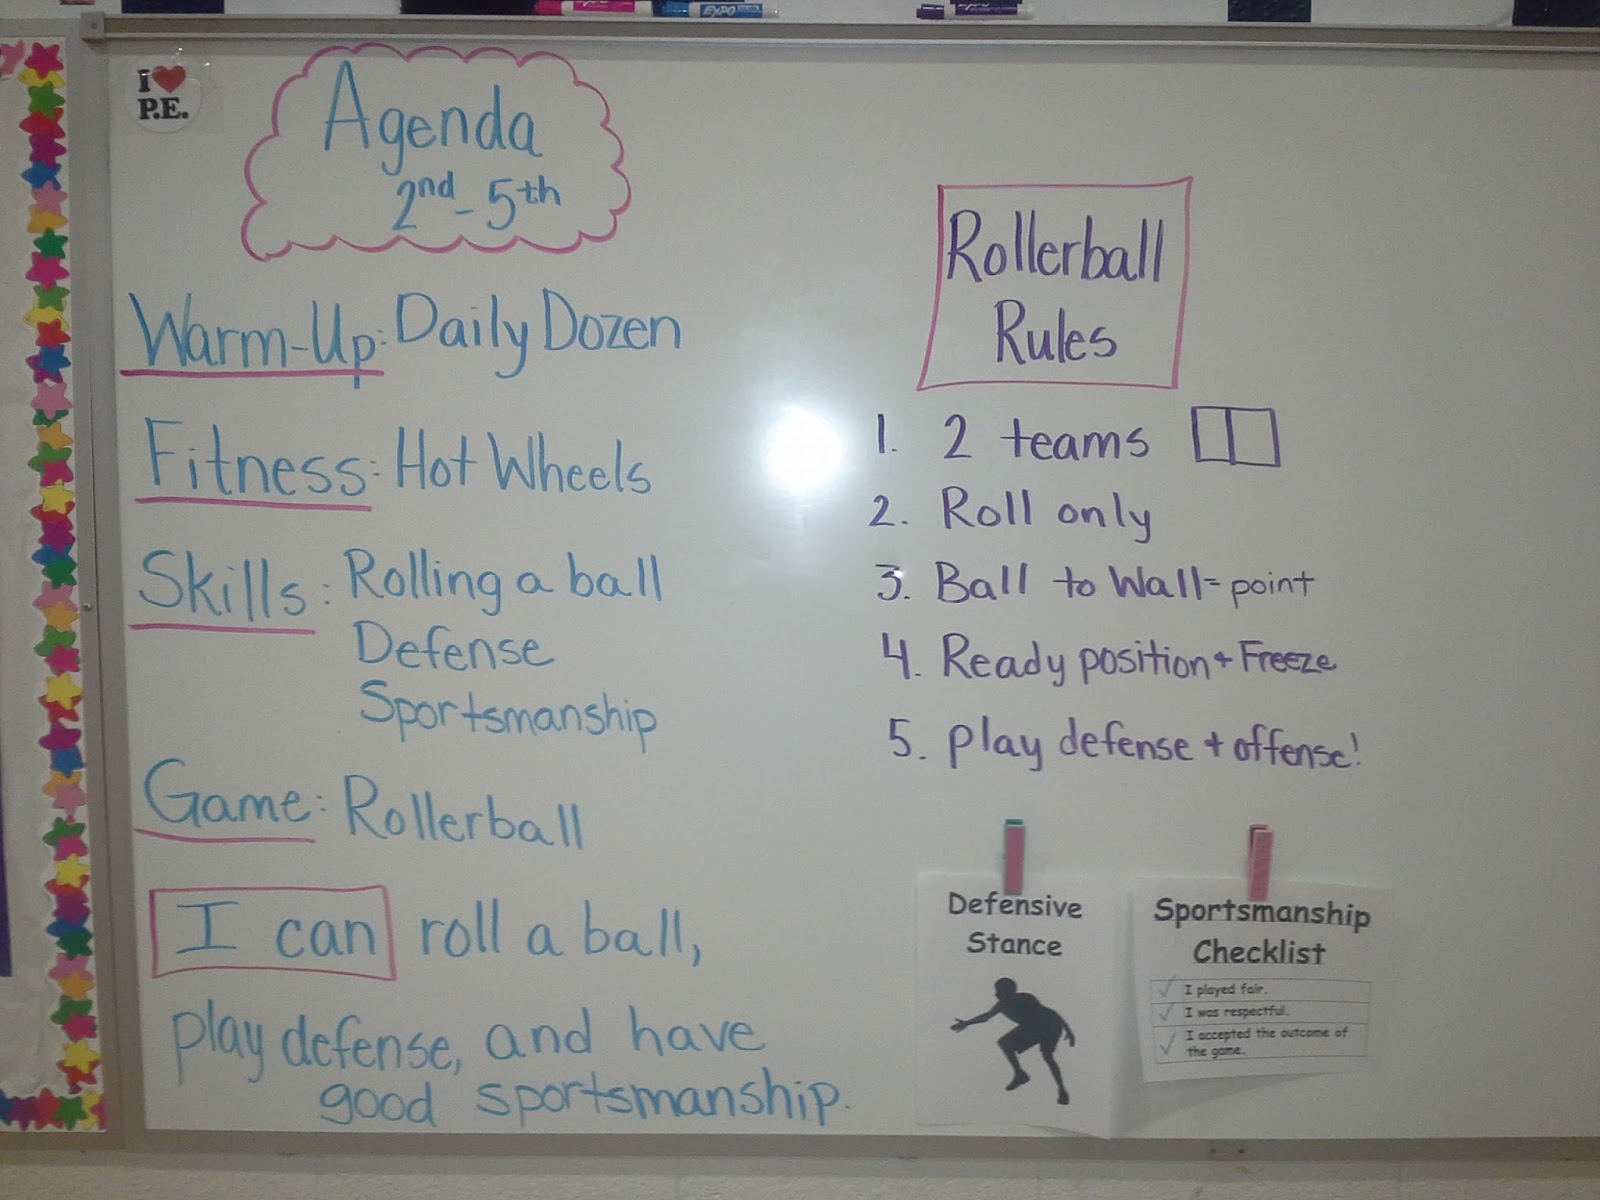 EXPO
I ❤ P.E.
Agenda
2nd - 5th
Warm-Up: Daily Dozen
Fitness: Hot Wheels
Skills: Rolling a ball
Defense
Sportsmanship
Game: Rollerball
I can roll a ball,
play defense, and have
good sportsmanship.
Rollerball
Rules
1. 2 teams
2. Roll only
3. Ball to Wall = point
4. Ready position + Freeze
5. play defense + offense!
Defensive
Stance
Sportsmanship
Checklist
✓ I played fair.
✓ I was respectful.
✓ I accepted the outcome of
the game.